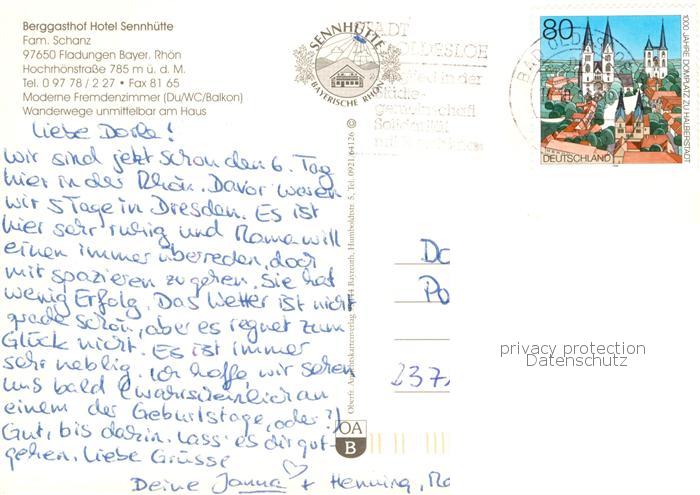 Berggasthof Hotel Sennhütte
Fam. Schanz
97650 Fladungen Bayer. Rhön
Hochrhönstraße 785 m ü. d. M.
Tel. 0 97 78 / 2 27 • Fax 81 65
Moderne Fremdenzimmer (Du/WC/Balkon)
Wanderwege unmittelbar am Haus
SENNHÜTTE
BAYERISCHE RHÖN
STADT
OLDESLOE
80
1000 JAHRE DOMPLATZ ZU HALBERSTADT
DEUTSCHLAND
Liebe Dorle!
Wir sind jetzt schon den 6. Tag
hier in der Rhön. Davor waren
wir 5 Tage in Dresden. Es ist
hier sehr ruhig und Mama will
einen immer überreden, doch
mit spazieren zu gehen. Sie hat
wenig Erfolg. Das Wetter ist nicht
grade schön, aber es regnet zum
Glück nicht. Es ist immer
sehr neblig. Ich hoffe, wir sehen
uns bald (wahrscheinlich an
einem der Geburtstage, oder?)
Gut, bis dahin. Lass es dir gut-
gehen. Liebe Grüsse
Deine Janna + Henning, Ma
Bayreuth, Humboldtstr. 5, Tel. 0921/64126 ©
Do
Po
237
privacy protection
Datenschutz
OA
B